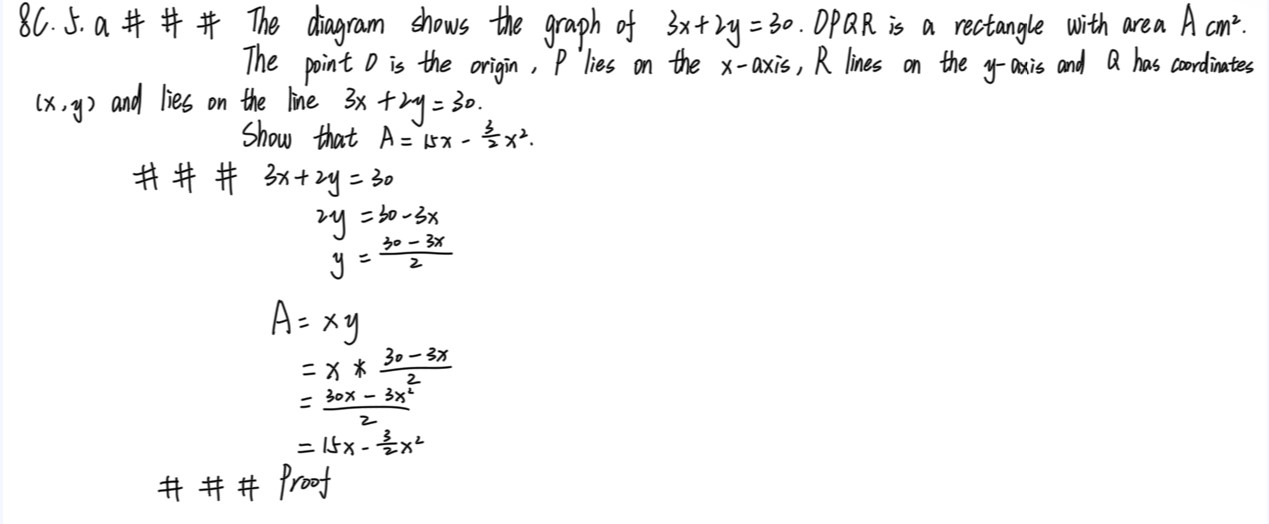 8C. 5. a # # # The diagram shows the graph of 3x+2y=30. OPQR is a rectangle with area A cm².
The point O is the origin, P lies on the x-axis, R lines on the y-axis and Q has coordinates
(x,y) and lies on the line 3x+2y=30.
Show that A = 15x - \frac{3}{2}x².
# # # 3x+2y=30
2y = 30-3x
y = \frac{30-3x}{2}
A = xy
= x * \frac{30-3x}{2}
= \frac{30x-3x²}{2}
= 15x - \frac{3}{2}x²
# # # Proof